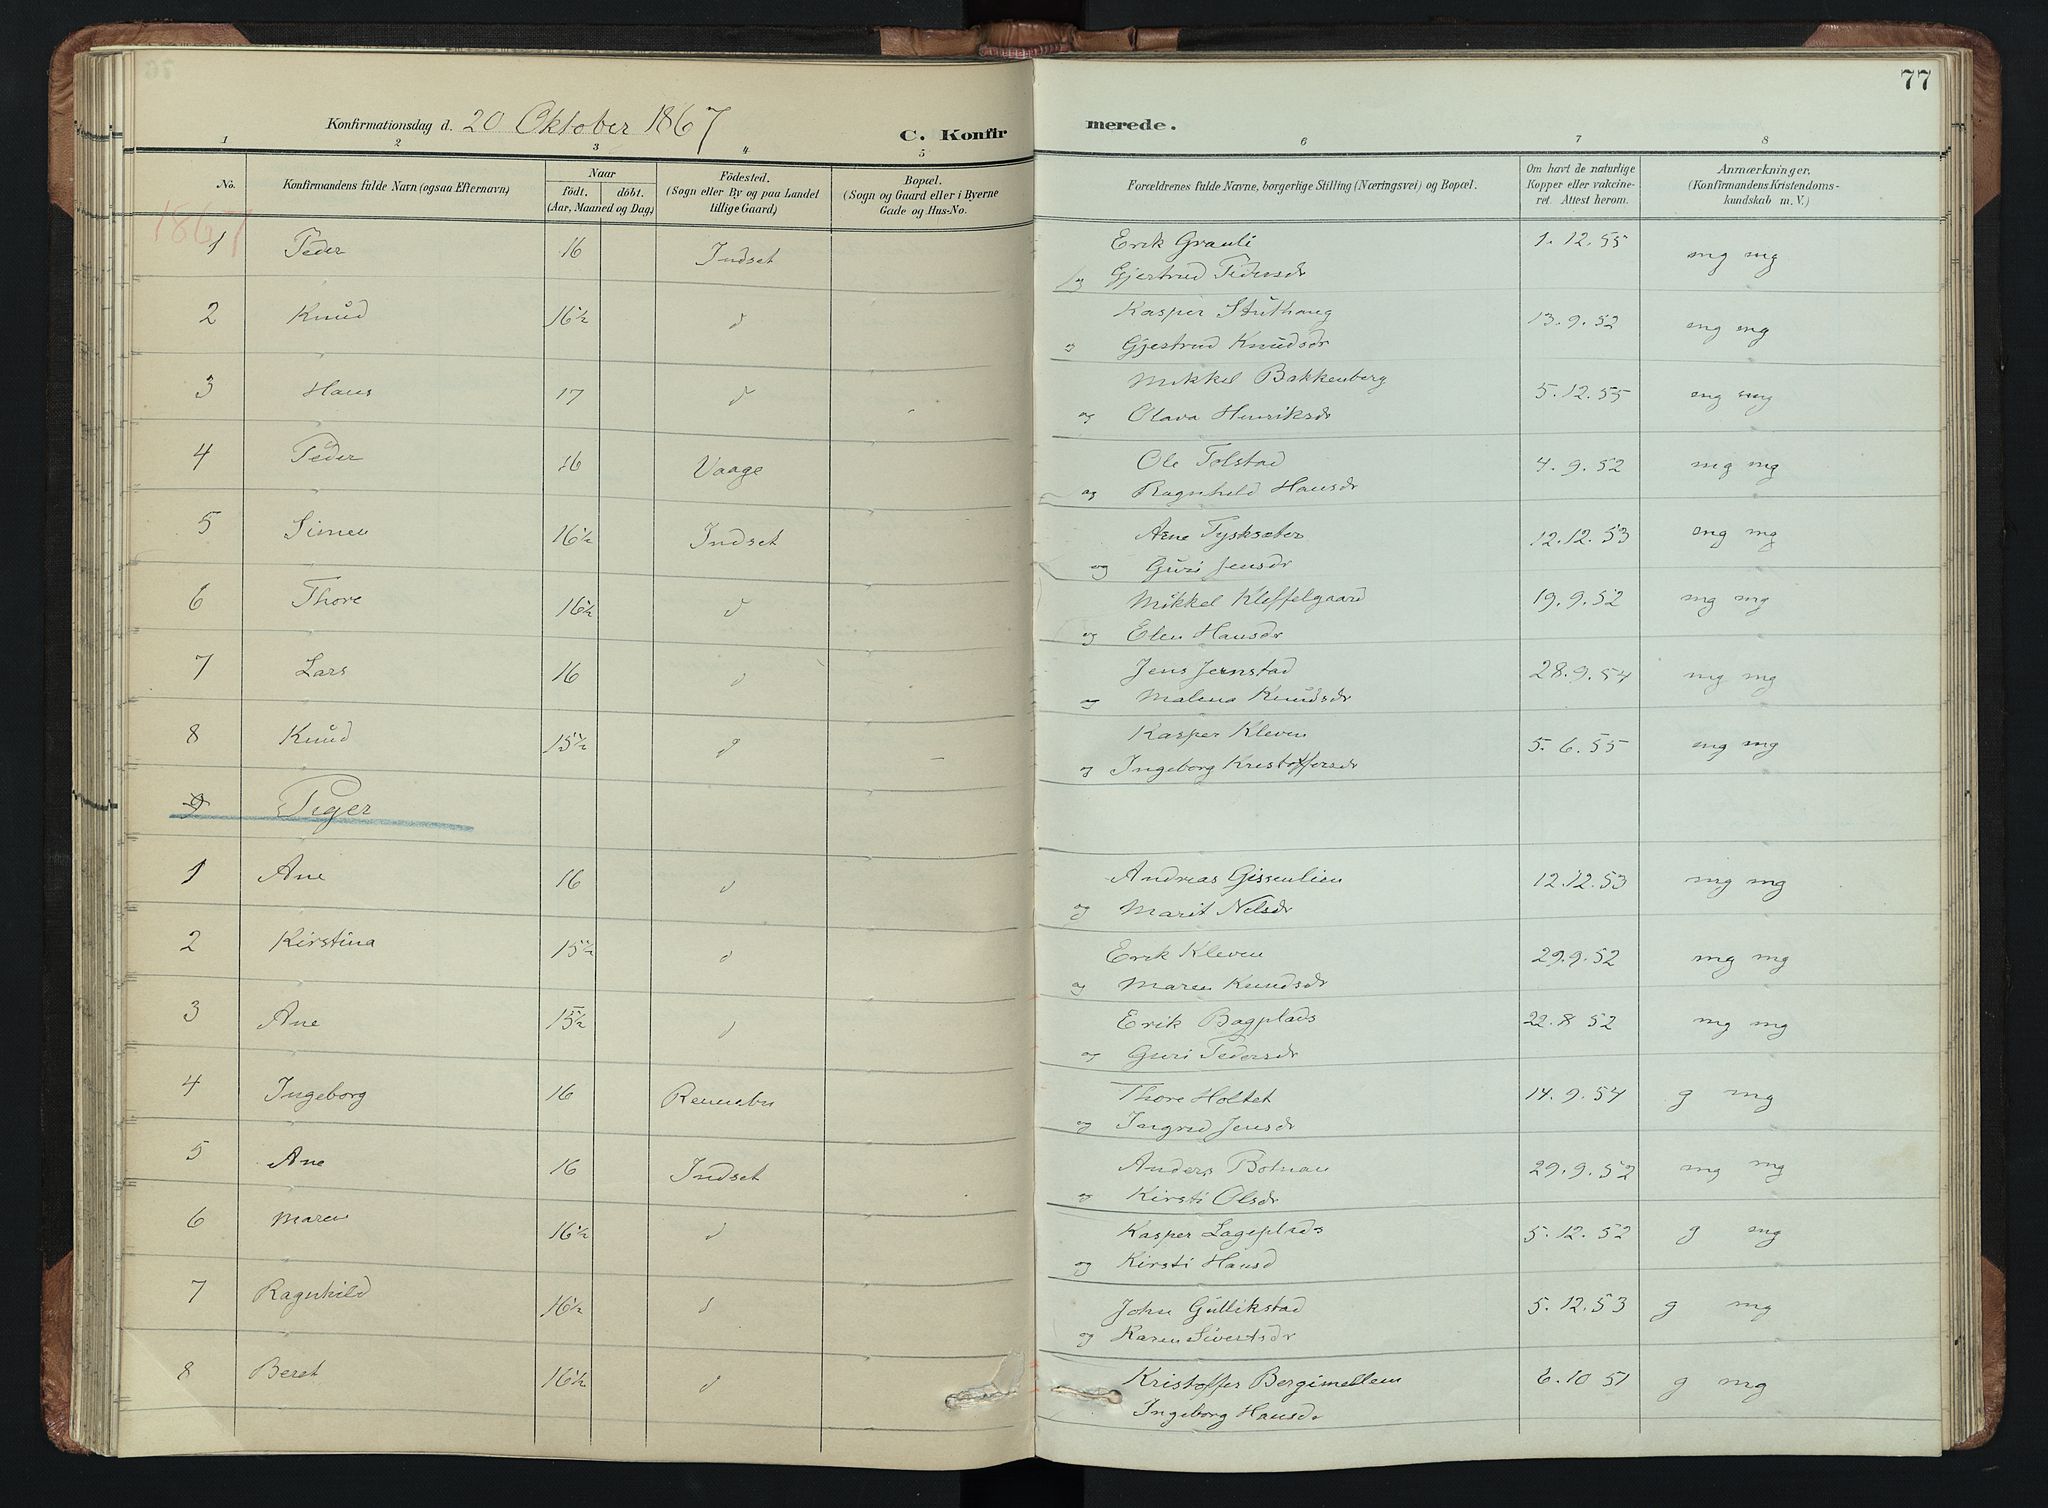 77
Konfirmationsdag d. 20 Oktober 1867
C. Konfirmerede.
1 2 3 4 5 6 7 8
No.
Konfirmandens fulde Navn (ogsaa Efternavn)
Naar
Født. døbt.
(Aar, Maaned og Dag.)
Fødested.
(Sogn eller By og paa Landet
tillige Gaard.)
Bopæl.
(Sogn og Gaard eller i Byerne
Gade og Hus-No.
Forældrenes fulde Navne, borgerlige Stilling (Næringsvei) og Bopæl.
Om havt de naturlige
Kopper eller vakcine-
ret. Attest herom.
Anmærkninger,
(Konfirmandens Kristendoms-
kundskab m. V.)
1867
1 Peder 16 Indset Erik Grauli 1. 12. 55 mg mg
og Gjertrud Pedersdr
2 Knud 16½ d Kasper Stuthaug 13. 9. 52 mg mg
og Gjertrud Knudsdr
3 Hans 17 d Mikkel Bakkenberg 5. 12. 55 mg mg
og Olava Henriksdr
4 Peder 16 Vaage Ole Tolstad 4. 9. 52 mg mg
og Ragnhild Hansdr
5 Simen 16½ Indset Arne Tysksæter 12. 12. 53 mg mg
og Guri Jensdr
6 Thore 16½ d Mikkel Kleffelgaard 19. 9. 52 mg mg
og Elen Hansdr
7 Lars 16 d Jens Jernstad 28. 9. 54 mg mg
og Malena Knudsdr
8 Knud 15½ d Kasper Kleven 5. 6. 55 mg mg
og Ingeborg Kristoffersdr
9 Piger
1 Ane 16 d Andreas Gissenlien 12. 12. 53 mg mg
og Marit Nelsdr
2 Kirstina 15½ d Erik Kleven 29. 9. 52 mg mg
og Maren Knudsdr
3 Ane 15½ d Erik Bagplads 22. 8 52 mg mg
og Guri Pedersdr
4 Ingeborg 16 Rennebu Thore Holtet 14. 9. 54 g mg
og Ingrid Jensdr
5 Ane 16 Indset Anders Botnan 29. 9. 52 mg mg
og Kirsti Olsdr
6 Maren 16½ d Kasper Lageplads 5. 12. 52 g mg
og Kirsti Hansd
7 Ragnhild 16½ d John Gullikstad 5. 12. 53 g mg
og Karen Sivertsdr
8 Beret 16½ d Kristoffer Bergimellem 6. 10 51 g mg
Ingeborg Hansdr